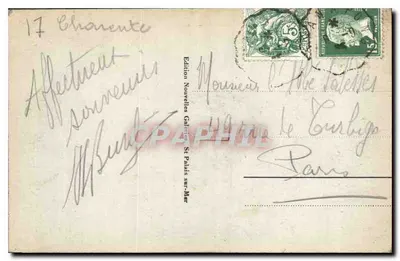 17 Charente
Affectueux
souvenirs
Edition Nouvelles Galeries St Palais sur-Mer
Monsieur l'Abbé
49 r. de Turbigo
Paris
CPAPHIL.COM
15